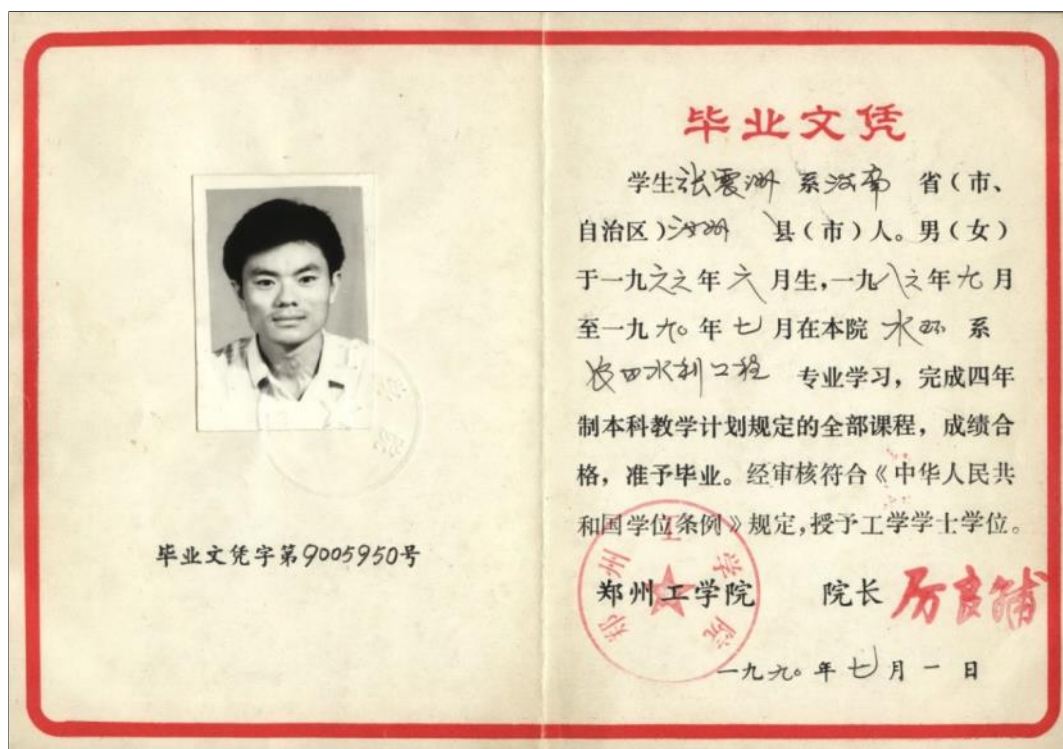 毕业文凭字第9005950号
毕业文凭
学生张震洲 系河南 省(市、
自治区)汝州 县(市)人。男(女)
于一九六六年六月生,一九八六年九月
至一九九〇年七月在本院 水环 系
农田水利工程 专业学习，完成四年
制本科教学计划规定的全部课程，成绩合
格，准予毕业。经审核符合《中华人民共
和国学位条例》规定,授予工学学士学位。
郑州工学院 院长 厉良辅
郑州工学院
一九九〇年七月一日